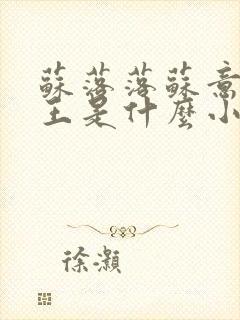 蘇落落蘇意
主是什麼小
徐灝